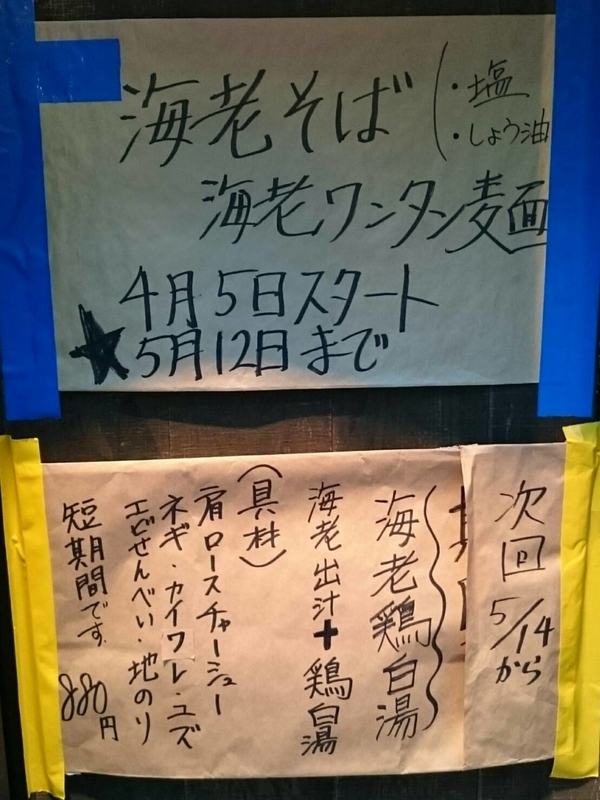 海老そば
・塩
・しょう油
海老ワンタン麺
4月5日スタート
★5月12日まで
次回
5/14
から
海老鶏白湯
海老出汁+鶏白湯
(具材)
肩ロースチャーシュー
ネギ・カイワレ・ユズ
エビせんべい・地のり
短期間です。
880円